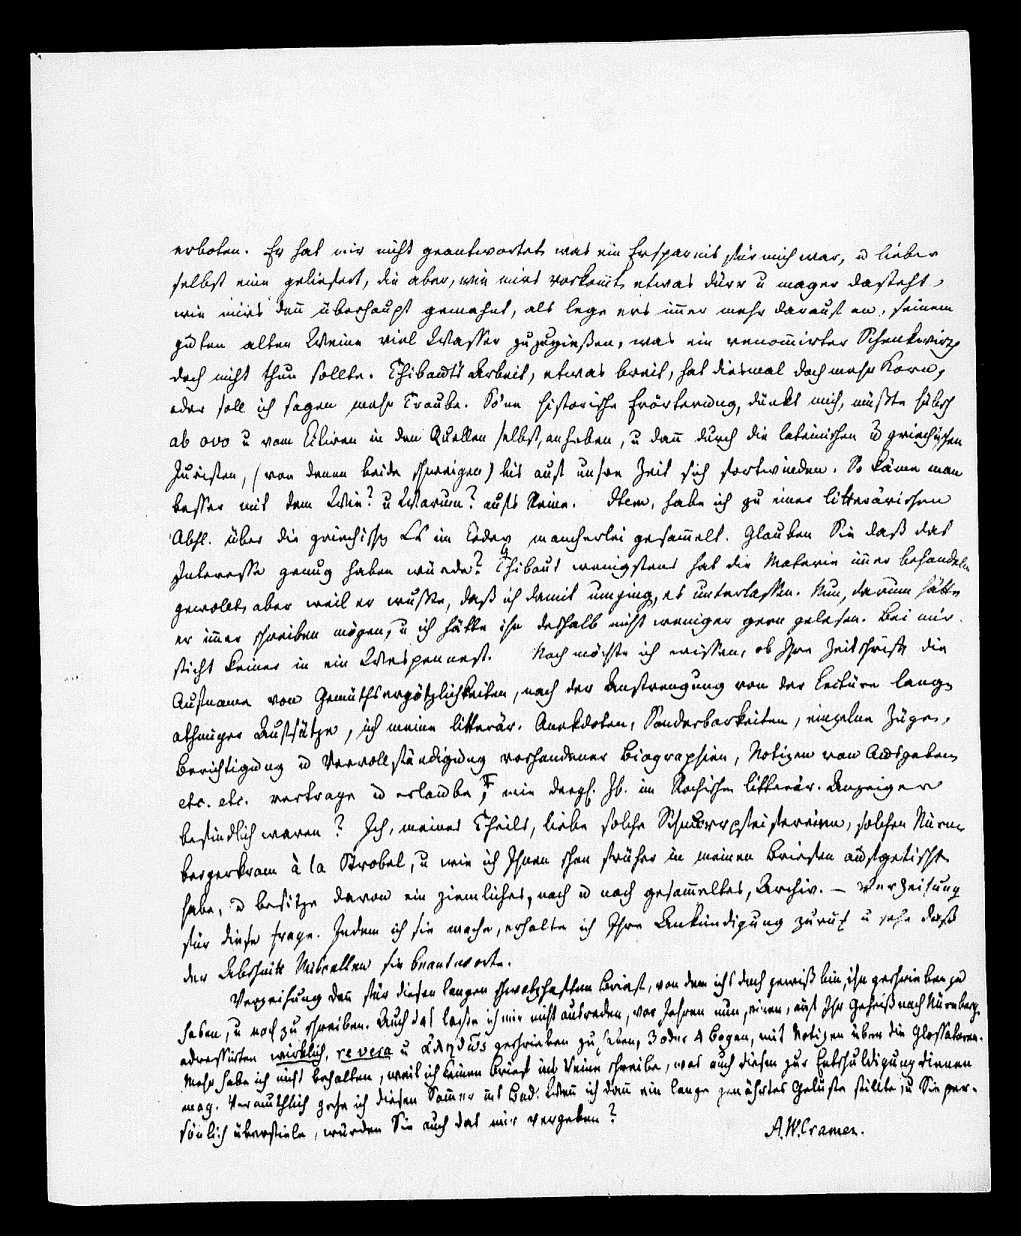 erboten. Er hat mir nicht geantwortet, was ein Ersparnis für mich war, u lieber
selbst eine geliefert, die aber, wie mirs vorkom̅t, etwas dürr u mager dasteht,
wie mirs den̅ überhaupt gemahnt, als lege ers im̅er mehr darauf an, seinem
guten alten Weine viel Wasser zuzugießen, was ein renom̅irter Schenkwirth
doch nicht thun sollte. Thibauts Arbeit, etwas breit, hat diesmal doch mehr Korn,
oder soll ich sagen mehr Traube. So'ne historische Erörterung, dünkt mich, müßte hübsch
ab ovo u vom in den Quellen selbst, anheben, u dan̅ durch die lateinischen u griechischen
Juristen, (von denen beide schweigen) bis auf unsre Zeit sich fortwinden. So käme man
besser mit dem Wie? u Warum? aufs Reine. Item, habe ich zu einer litterärischen
Abhl. über die griechischen im mancherlei gesam̅elt. Glauben Sie daß das
Interesse genug haben würde? Thibaut wenigstens hat die Materie im̅er behandeln
gewolt, aber weil er wußte, daß ich damit umging, es unterlassen. Nun, darum hätte
er im̅er schreiben mögen, u ich hätte ihn deshalb nicht weniger gern gelesen. Bei mir
sticht keiner in ein Wespennest. Noch möchte ich wissen, ob Ihre Zeitschrift die
Aufname von Gemüthsergötzlichkeiten, nach der Anstrengung von der Lectüre lang-
athmiger Aufsätze, ich meine litterär. Anekdoten, Sonderbarkeiten, einzelne Züge,
Berichtigung u Vervollständigung vorhandener Biographien, Notizen von Ausgaben
etc. etc. vertrage u erlaube, wie dergl. zb. im Kochischen litterär. Anzeiger
befindlich waren? Ich, meines Theils, liebe solche Schnurrpfeifereien, solchen Nürn-
bergerkram à la Strobel, u wie ich Ihnen schon früher in meinen Briefen aufgetischt
habe, u besitze davon ein ziemliches, nach u nach gesam̅eltes, Archiv. – Verzeihung
für diese Frage. Indem ich sie mache, erhalte ich Ihre Ankündigung zurük u sehe daß
der Abschnitt Miscellen sie beantworte.
Verzeihung den für diesen langen schwatzhaften Brief, von dem ichs doch gewiß bin, ihn geschrieben zu
haben, u noch zu schreiben. Auch das lasse ich mir nicht ausreden, vor Jahren nun, einen, auf Ihr Geheiß nach Nürnberg
adressirten wirklich, re vera u geschrieben zu haben, 3 oder 4 Bogen, mit Notizen über die Glossatoren.
Mehr habe ich nicht behalten, weil ich keinen Brief ins Reine schreibe, was auch diesem zur Entschuldigung dienen
mag. Vermuthlich gehe ich diesen Som̅er ins Bad. Wen̅ ich dan̅ ein lange genährtes Gelüste stillte u Sie per-
sönlich überfiele, würden Sie auch das mir vergeben?
A.W.Cramer.